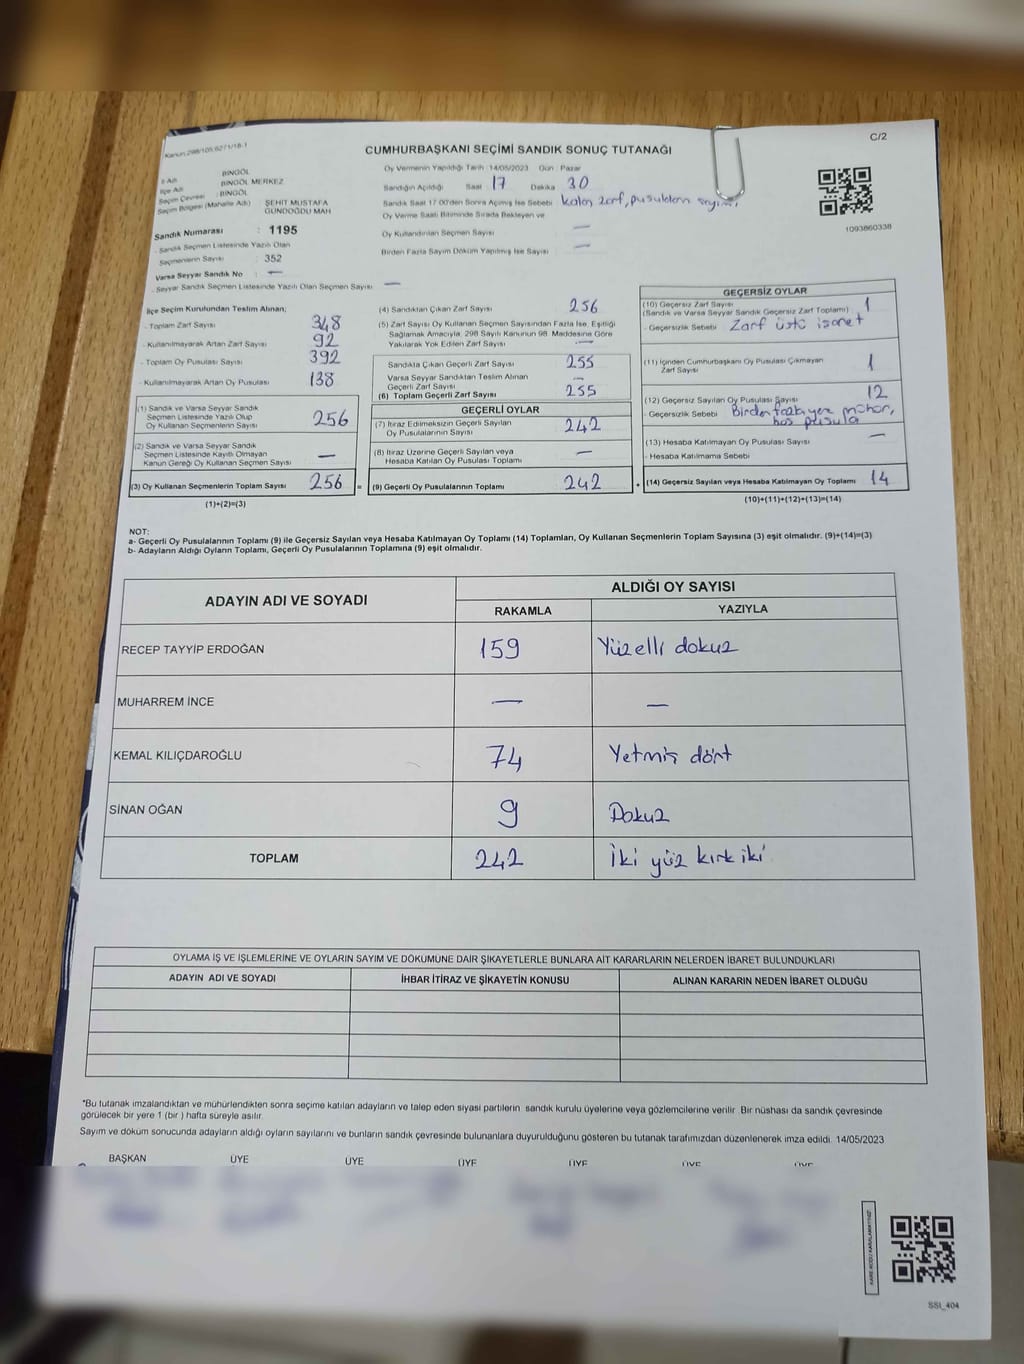 Kanun:298/105;6271/18-1
CUMHURBAŞKANI SEÇİMİ SANDIK SONUÇ TUTANAĞI
C/2
İl Adı : BİNGÖL
İlçe Adı : BİNGÖL MERKEZ
Seçim Çevresi : BİNGÖL
Seçim Bölgesi (Mahalle Adı) : ŞEHİT MUSTAFA GÜNDOĞDU MAH
Sandık Numarası : 1195
- Sandık Seçmen Listesinde Yazılı Olan
Seçmenlerin Sayısı : 352
Varsa Seyyar Sandık No : —
- Seyyar Sandık Seçmen Listesinde Yazılı Olan Seçmen Sayısı : —
Oy Vermenin Yapıldığı Tarih : 14/05/2023 Gün : Pazar
Sandığın Açıldığı Saat 17 Dakika 30
Sandık Saat 17.00'den Sonra Açılmış İse Sebebi kalan zarf, pusuların sayımı
Oy Verme Saati Bitiminde Sırada Bekleyen ve
Oy Kullandırılan Seçmen Sayısı —
Birden Fazla Sayım Döküm Yapılmış İse Sayısı —
1093860338
İlçe Seçim Kurulundan Teslim Alınan;
- Toplam Zarf Sayısı 348
- Kullanılmayarak Artan Zarf Sayısı 92
- Toplam Oy Pusulası Sayısı 392
- Kullanılmayarak Artan Oy Pusulası 138
(1) Sandık ve Varsa Seyyar Sandık
Seçmen Listesinde Yazılı Olup
Oy Kullanan Seçmenlerin Sayısı 256
(2) Sandık ve Varsa Seyyar Sandık
Seçmen Listesinde Kayıtlı Olmayan
Kanun Gereği Oy Kullanan Seçmen Sayısı —
(3) Oy Kullanan Seçmenlerin Toplam Sayısı 256 =
(1)+(2)=(3)
(4) Sandıktan Çıkan Zarf Sayısı 256
(5) Zarf Sayısı Oy Kullanan Seçmen Sayısından Fazla İse, Eşitliği
Sağlamak Amacıyla, 298 Sayılı Kanunun 98. Maddesine Göre
Yakılarak Yok Edilen Zarf Sayısı —
Sandıkta Çıkan Geçerli Zarf Sayısı 255
Varsa Seyyar Sandıktan Teslim Alınan
Geçerli Zarf Sayısı —
(6) Toplam Geçerli Zarf Sayısı 255
GEÇERLİ OYLAR
(7) İtiraz Edilmeksizin Geçerli Sayılan
Oy Pusulalarının Sayısı 242
(8) İtiraz Üzerine Geçerli Sayılan veya
Hesaba Katılan Oy Pusulası Toplamı —
(9) Geçerli Oy Pusulalarının Toplamı 242 +
GEÇERSİZ OYLAR
(10) Geçersiz Zarf Sayısı
(Sandık ve Varsa Seyyar Sandık Geçersiz Zarf Toplamı) 1
- Geçersizlik Sebebi Zarf üstü işaret
(11) İçinden Cumhurbaşkanı Oy Pusulası Çıkmayan
Zarf Sayısı 1
(12) Geçersiz Sayılan Oy Pusulası Sayısı 12
- Geçersizlik Sebebi Birden fazla yere mühür,
boş pusula
(13) Hesaba Katılmayan Oy Pusulası Sayısı —
- Hesaba Katılmama Sebebi
(14) Geçersiz Sayılan veya Hesaba Katılmayan Oy Toplamı 14
(10)+(11)+(12)+(13)=(14)
NOT:
a- Geçerli Oy Pusulalarının Toplamı (9) ile Geçersiz Sayılan veya Hesaba Katılmayan Oy Toplamı (14) Toplamları, Oy Kullanan Seçmenlerin Toplam Sayısına (3) eşit olmalıdır. (9)+(14)=(3)
b- Adayların Aldığı Oyların Toplamı, Geçerli Oy Pusulalarının Toplamına (9) eşit olmalıdır.
ADAYIN ADI VE SOYADI
ALDIĞI OY SAYISI
RAKAMLA YAZIYLA
RECEP TAYYİP ERDOĞAN 159 Yüzelli dokuz
MUHARREM İNCE — —
KEMAL KILIÇDAROĞLU 74 Yetmiş dört
SİNAN OĞAN 9 Dokuz
TOPLAM 242 İki yüz kırk iki
OYLAMA İŞ VE İŞLEMLERİNE VE OYLARIN SAYIM VE DÖKÜMÜNE DAİR ŞİKAYETLERLE BUNLARA AİT KARARLARIN NELERDEN İBARET BULUNDUKLARI
ADAYIN ADI VE SOYADI İHBAR İTİRAZ VE ŞİKAYETİN KONUSU ALINAN KARARIN NEDEN İBARET OLDUĞU
"Bu tutanak imzalandıktan ve mühürlendikten sonra seçime katılan adayların ve talep eden siyasi partilerin sandık kurulu üyelerine veya gözlemcilerine verilir. Bir nüshası da sandık çevresinde
görülecek bir yere 1 (bir ) hafta süreyle asılır.
Sayım ve döküm sonucunda adayların aldığı oyların sayılarını ve bunların sandık çevresinde bulunanlara duyurulduğunu gösteren bu tutanak tarafımızdan düzenlenerek imza edildi. 14/05/2023
BAŞKAN ÜYE ÜYE ÜYE ÜYE ÜYE ÜYE
SSI_404